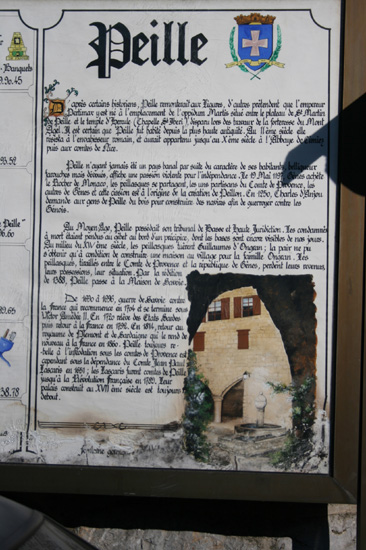 Peille
Banquets
D'après certains historiens, Peille remonterait aux Ligures, d'autres prétendent que l'empereur
Pertinax y est né à l'emplacement de l'oppidum St Martin situé entre le plateau de St Martin
de Peille et le temple d'Hercule (Chapelle St Bert) disparu lors des travaux de la forteresse du Mont
Agel. Il est certain que Peille fut habité depuis la plus haute antiquité. Au 11ème siècle elle
résista à l'envahisseur romain, et aurait appartenu jusqu'au Xème siècle à l'Abbaye de
puis aux comtes de Nice.
Peille n'ayant jamais été un pays banal par suite du caractère de ses habitants, belliqueux
farouches mais dévoués, affiche une passion violente pour l'indépendance. Le 19 Mai 1197 Gênes achète
le Rocher de Monaco, les peillasques se partagent, les uns partisans du Comte de Provence, les
autres de Gênes et cette scission est à l'origine de la création de Peillon. En 1250, Charles d'Anjou
demande aux gens de Peille du bois pour construire des navires afin de guerroyer contre les
Génois.
Au Moyen-Age, Peille possédait son tribunal de Basse et Haute Juridiction. Les condamnés
à mort étaient pendus au gibet au bord d'un précipice, dont les bases sont encore visibles de nos jours.
Au milieu du XIV ème siècle, les peillasques tuèrent Guillaumes d'Engran ; la paix ne put
s'obtenir qu'à condition de construire une maison au village pour la famille Engran. Les
peillasques, tiraillés entre le Comte de Provence et la république de Gênes, perdent leurs revenus,
leurs possessions, leur situation. Par la reddition
de 1388, Peille passe à la Maison de Savoie.
De 1690 à 1696, guerre de Savoie contre
la france qui recommence en 1704 et se termine sous
Victor Amédée II. En 1720 mise des Etats Sardes
puis retour à la france en 1796. En 1814, retour au
royaume de Piémont et de Sardaigne qui le rend de
nouveau à la france en 1860. Peille toujours re-
belle à l'inféodation sous les comtes de Provence est
cependant sous la dépendance du Comte Jean Paul
Lascaris en 1651 ; les Lascaris furent comtes de Peille
jusqu'à la Révolution Française en 1789. Leur
palais construit au XVII ème siècle est toujours
debout.
93.59
Peille"
138.78